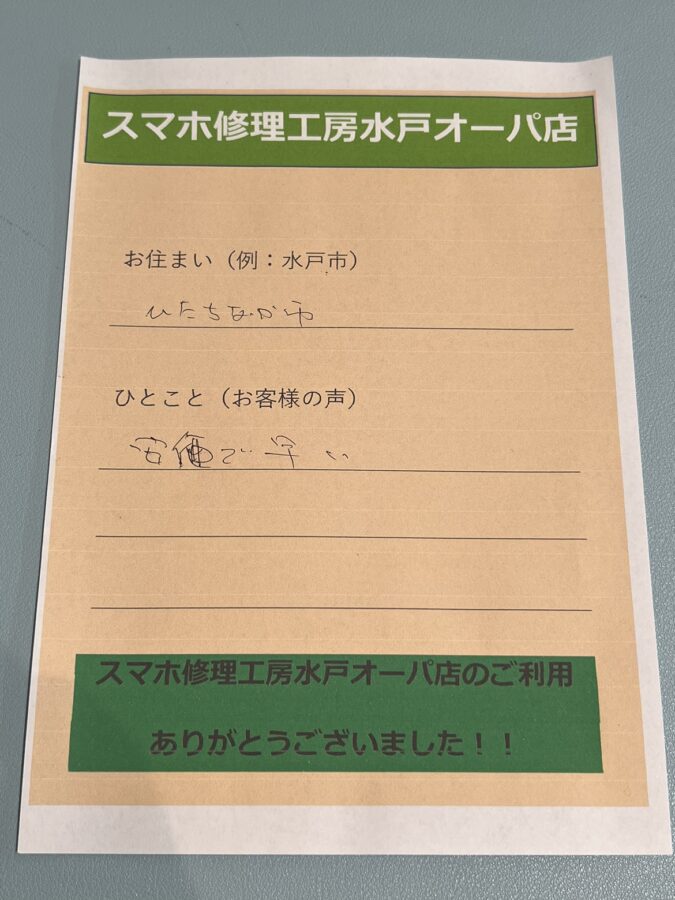 スマホ修理工房水戸オーパ店
お住まい（例：水戸市）
ひたちなか市
ひとこと（お客様の声）
安価で早い
スマホ修理工房水戸オーパ店のご利用
ありがとうございました！！